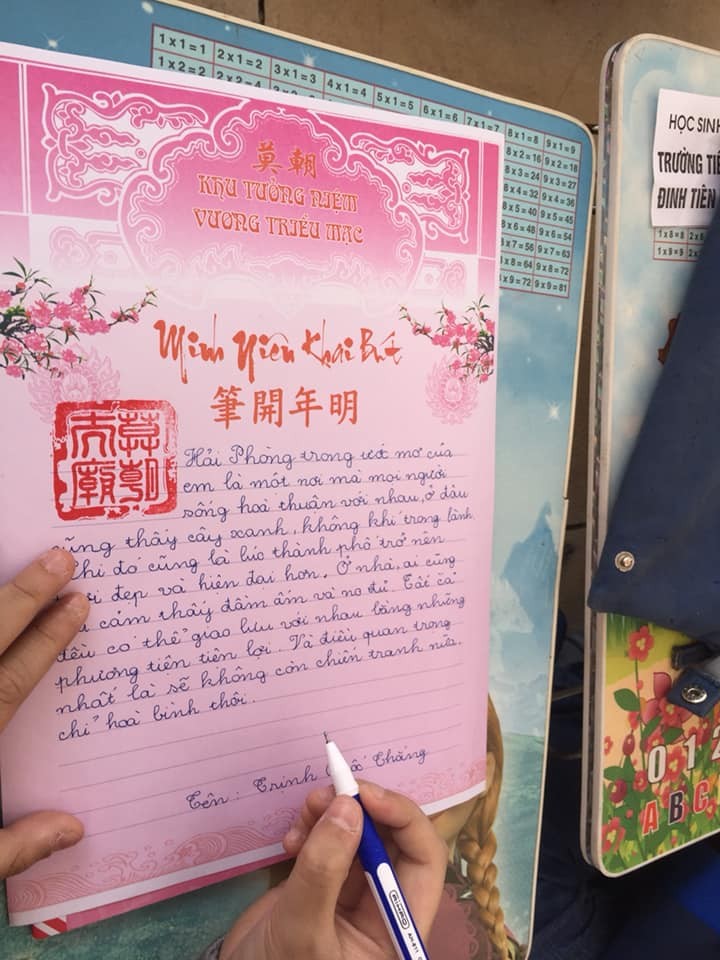 1x1=1 2x1=2 3x1=3 4x1=4 5x1=5 6x1=6 7x1=7 8x1=8 9x1=9
1x2=2 2x2=4 8x2=16 9x2=18
8x3=24 9x3=27
8x4=32 9x4=36
8x5=40 9x5=45
8x6=48 9x6=54
8x7=56 9x7=63
8x8=64 9x8=72
9x9=81
莫朝
KHU TƯỞNG NIỆM
VƯƠNG TRIỀU MẠC
Minh Niên Khai Bút
筆開年明
Hải Phòng trong ước mơ của
em là một nơi mà mọi người
sống hoà thuận với nhau, ở đâu
cũng thấy cây xanh, không khí trong lành.
Khi đó cũng là lúc thành phố trở nên
đẹp và hiện đại hơn. Ở nhà, ai cũng
cảm thấy đầm ấm và no đủ. Tất cả
đều có thể giao lưu với nhau bằng những
phương tiện tiện lợi. Và điều quan trọng
nhất là sẽ không còn chiến tranh nữa,
chỉ hoà bình thôi.
Tên: Trịnh Thắng
HỌC SINH
TRƯỜNG
ĐINH TIÊN
1x8=8
1x9=9
0 1 2
A B C